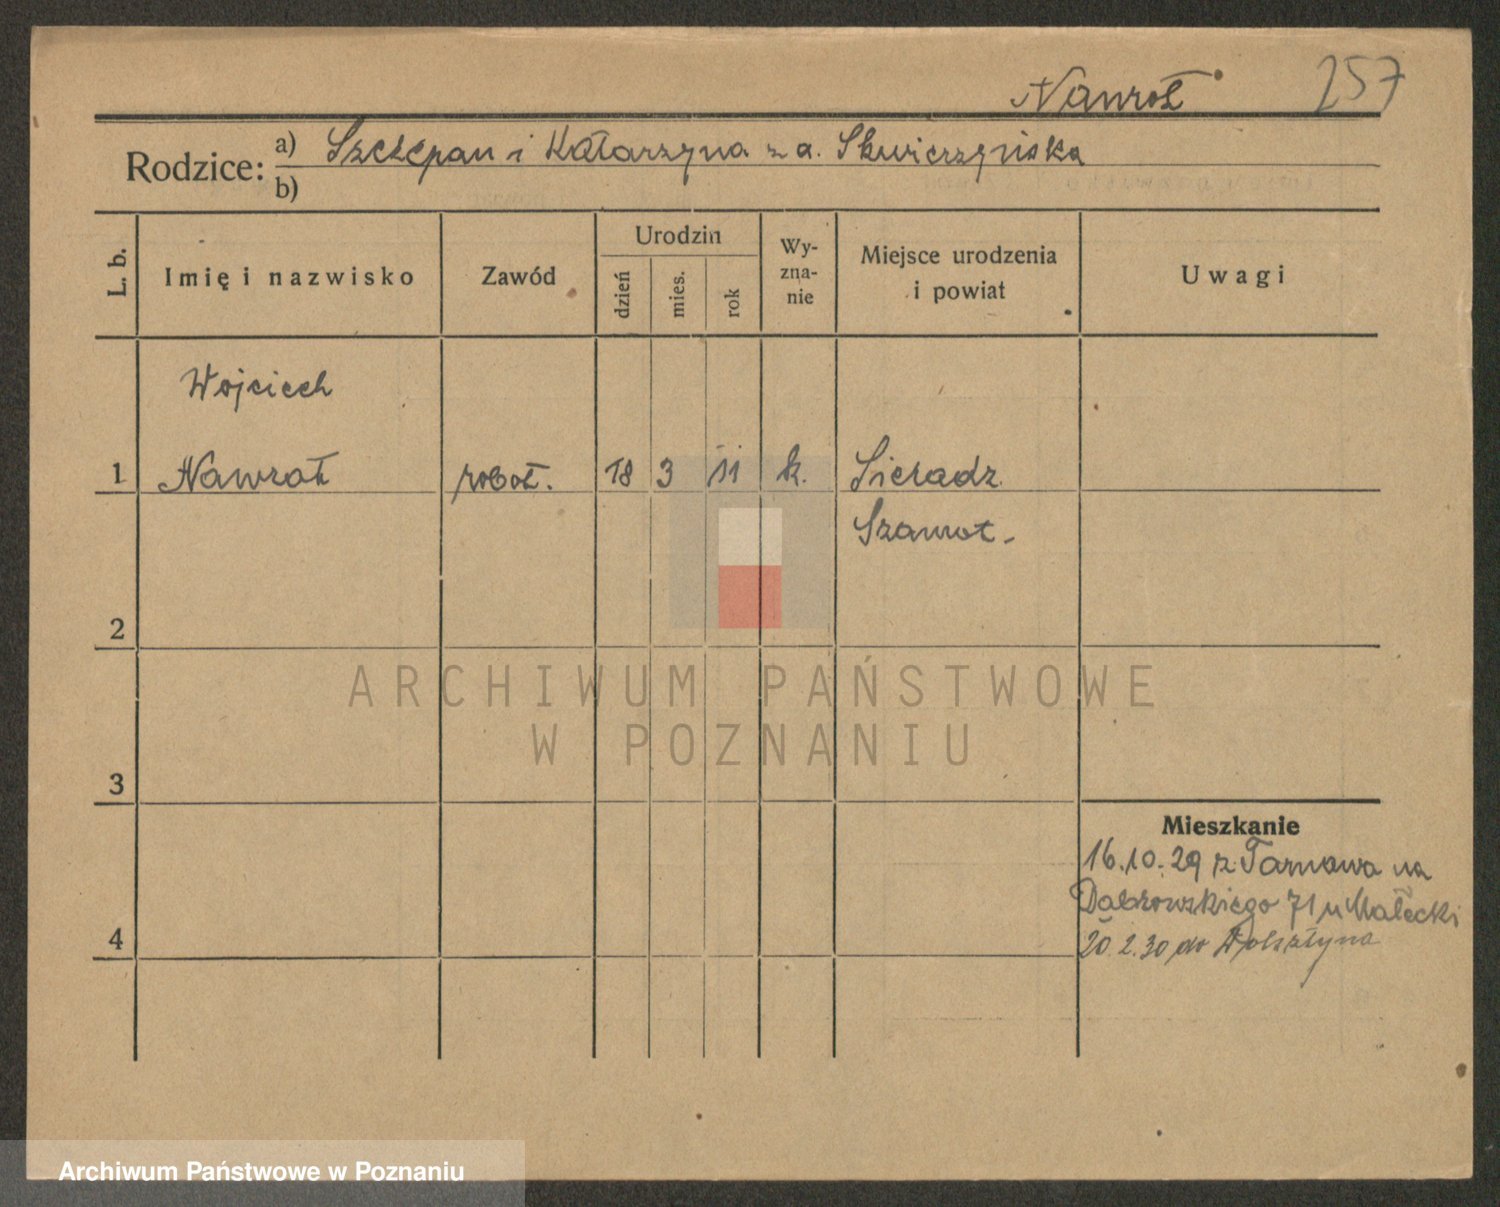 Nawrot 257
Rodzice: a) Szczepan i Katarzyna z d. Skwierzyńska
b)
L. b. Imię i nazwisko Zawód Urodzin dzień mies. rok Wy-zna-nie Miejsce urodzenia i powiat Uwagi
Wojciech
1 Nawrot robot. 18 3 11 k. Sieradz
Szamot.
2
ARCHIWUM PAŃSTWOWE
W POZNANIU
3
Mieszkanie
16.10.29 z Tarnowa na
Dąbrowskiego 71 u Małecki
4 20.2.30 do Wolsztyna
Archiwum Państwowe w Poznaniu